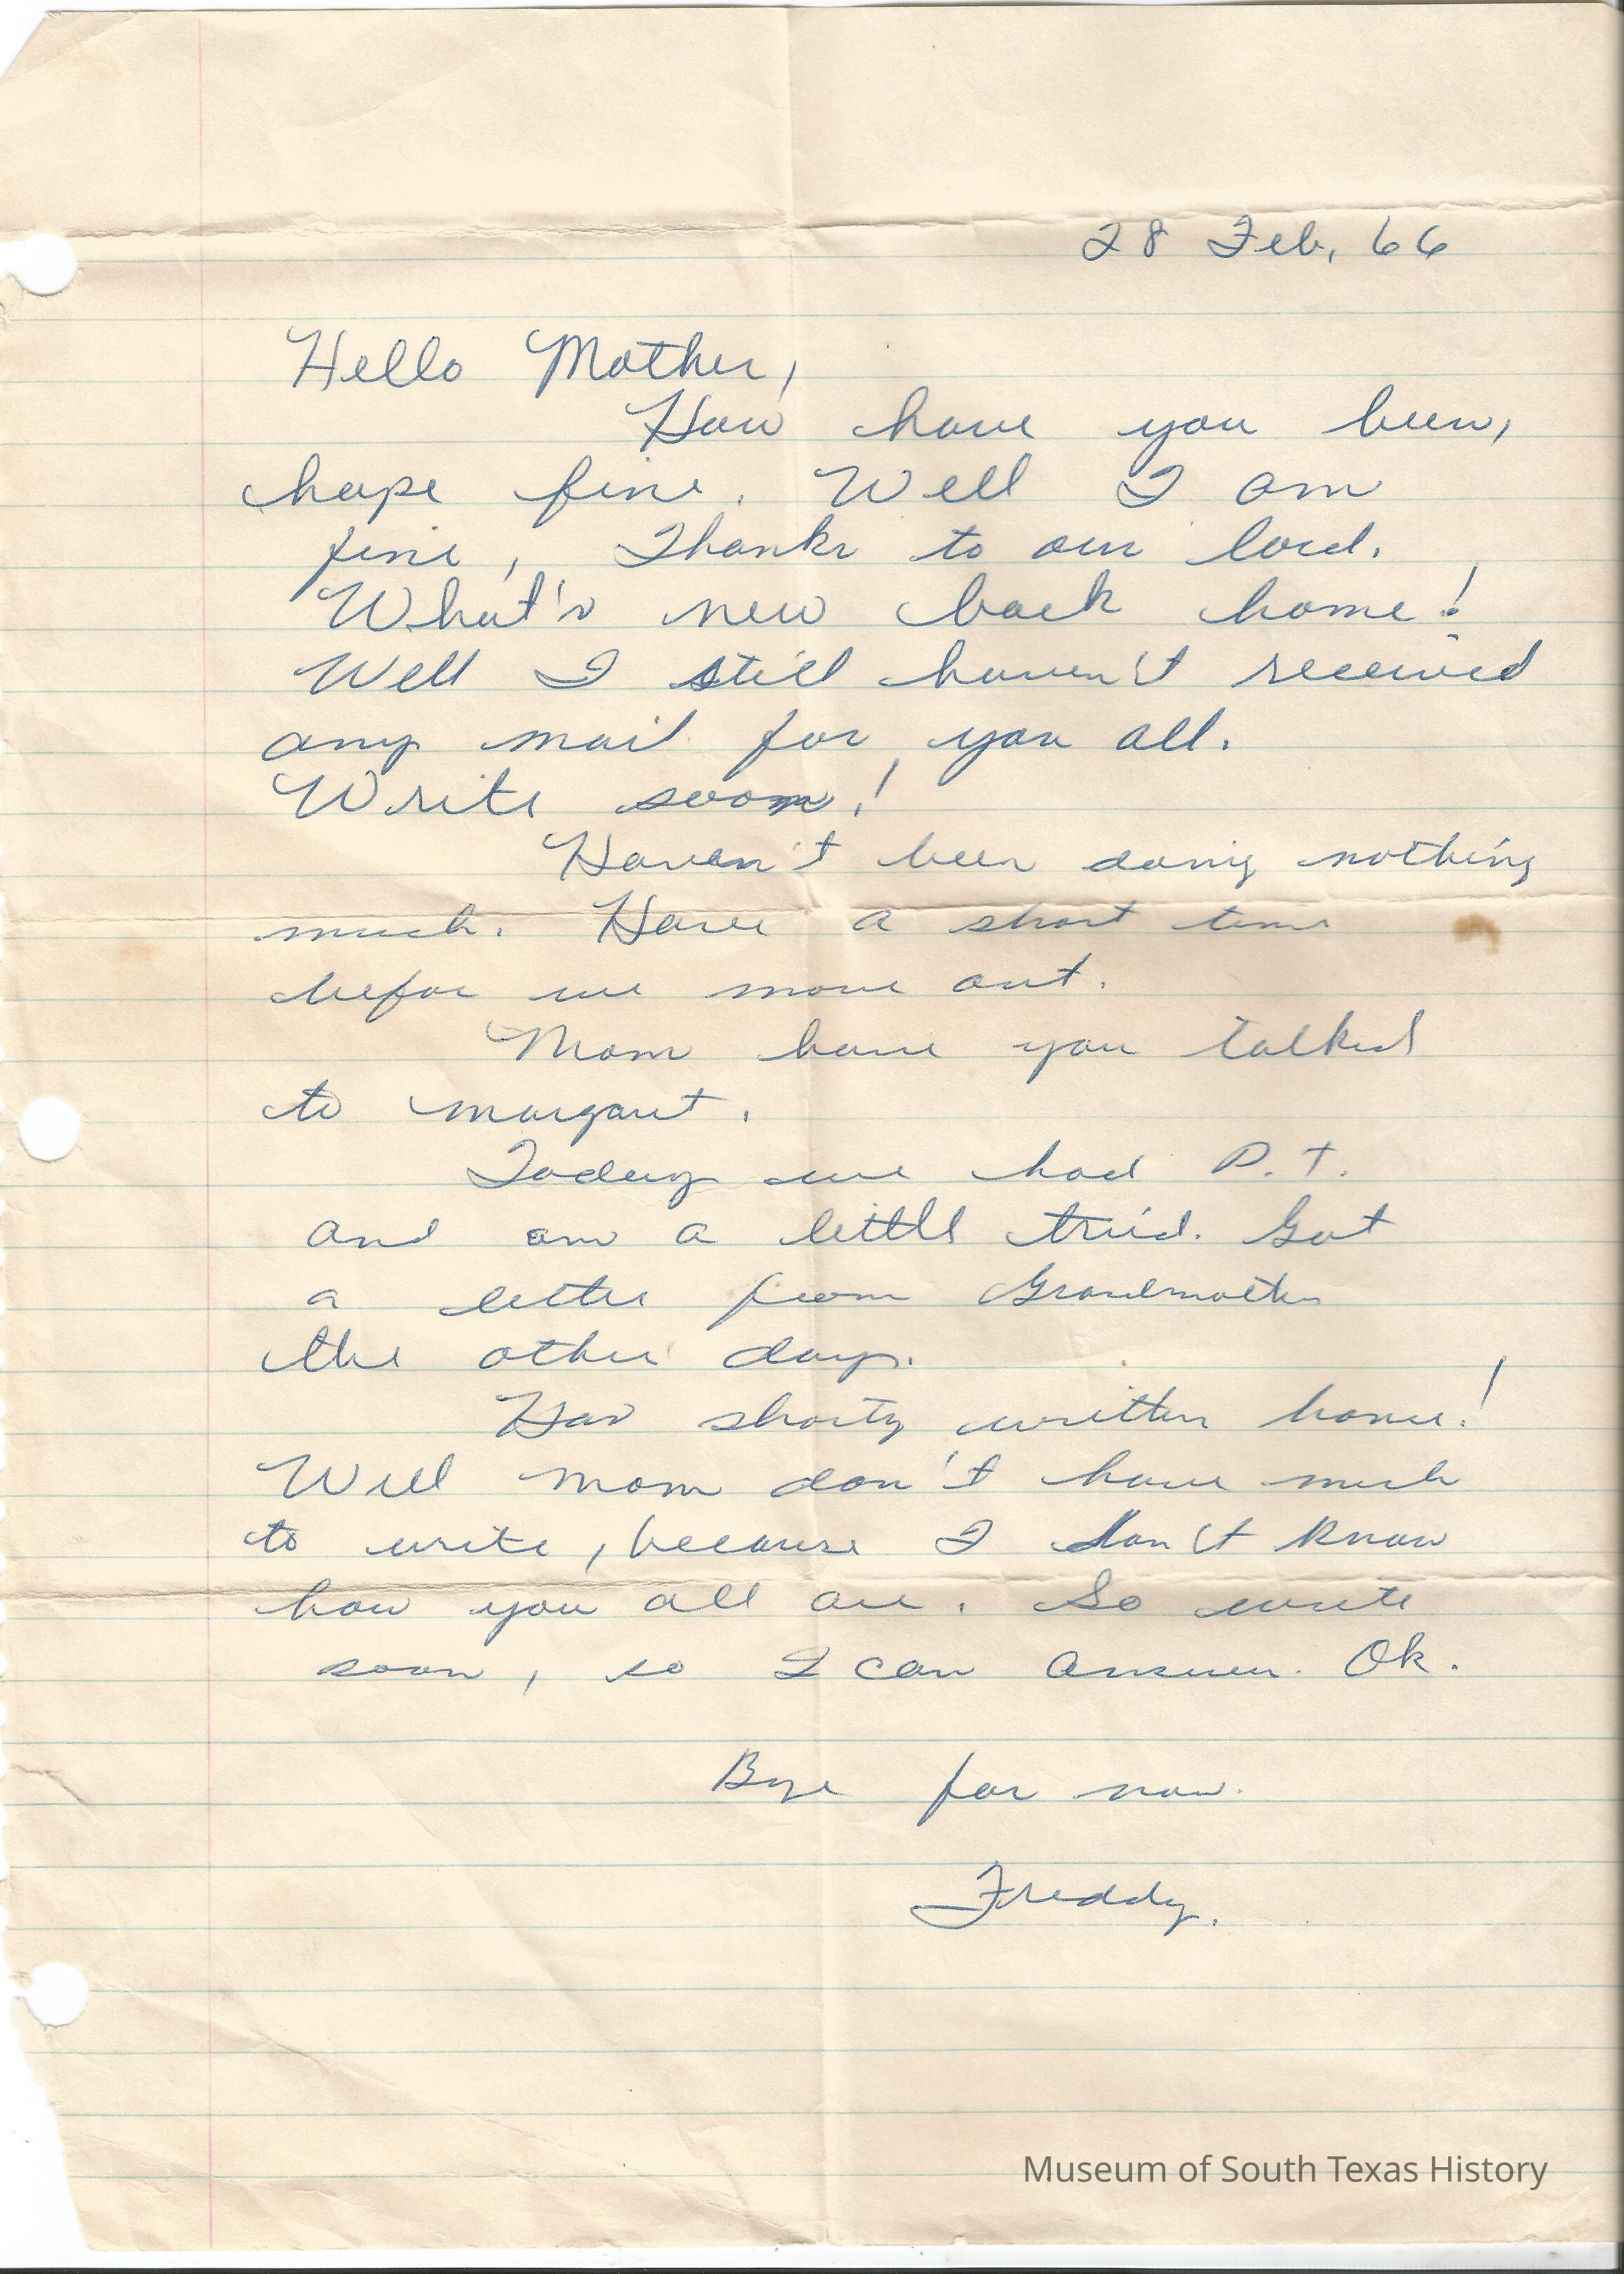 28 Feb, 66
Hello Mother,
How have you been,
hope fine. Well I am
fine, Thanks to our lord.
What's new back home!
Well I still haven't received
any mail for you all.
Write soon!
Haven't been doing nothing
much. Have a short time
befor we move out.
Mom have you talked
to margaret.
Today we had P.T.
and am a little tried. Got
a letter from Grandmother
the other day.
Has shorty written home!
Well mom don't have much
to write, because I don't know
how you all are. So write
soon, so I can answer. Ok.
Bye for now.
Freddy.
Museum of South Texas History